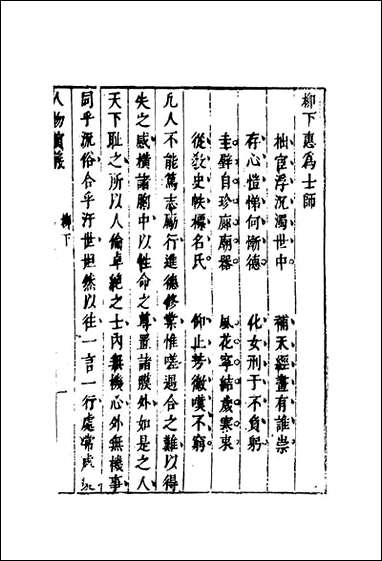 柳下惠為士師
拙宦浮沉濁世中　補天經畫有誰崇
存心愷悌何慚德　化女刑于不負躬
圭璧自珍廊廟器　風花寧結歲寒衷
從教史帙標名氏　仰止芳徽嘆不窮
凡人不能篤志勵行進德修業惟嗟遇合之難以得
失之感橫諸胸中以性命之尊置諸膜外如是之人
天下恥之所以人倫卓絕之士內無機心外無機事
同乎流俗合乎汙世坦然以往一言一行處常處
人物演義　柳下